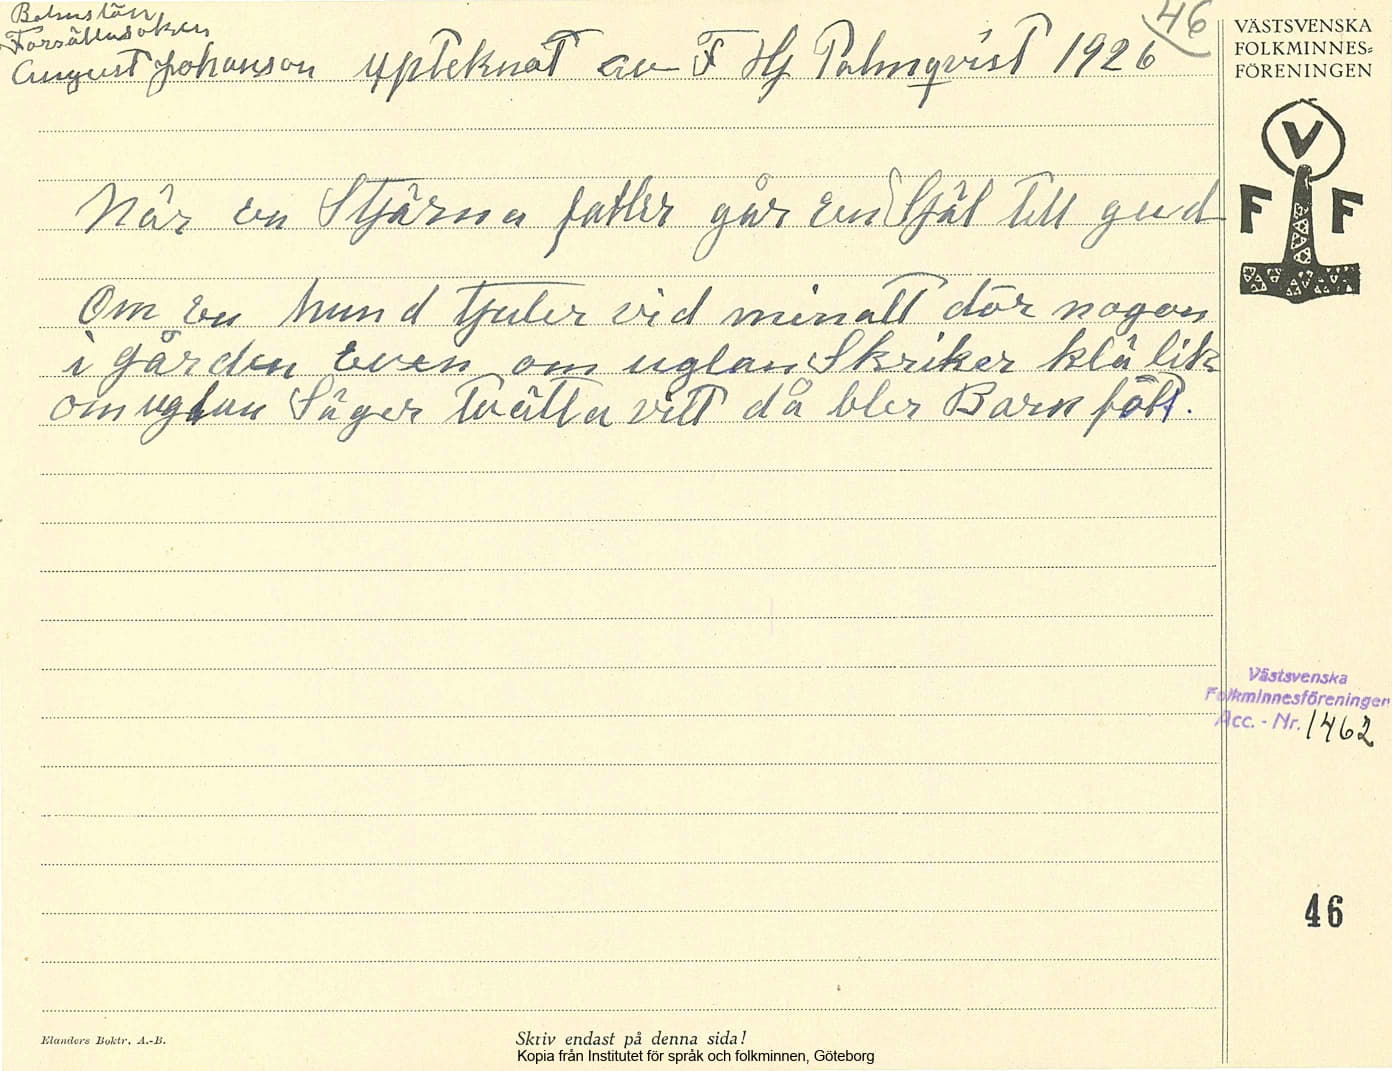 Bohuslän
Forsälla soken
August Johanson upteknat av F Hj Palmqvist 1926
46
När en Stjärna faller går en Själ till gud
Om en hund tjuter vid minatt dör nogon
i gården even om uglan Skriker klä lik
om uglan Säger tvätta vitt då bler Barn fött.
VÄSTSVENSKA
FOLKMINNES=
FÖRENINGEN
V
F F
Västsvenska
Folkminnesföreningen
Acc. - Nr. 1462
46
Elanders Boktr. A.-B.
Skriv endast på denna sida!
Kopia från Institutet för språk och folkminnen, Göteborg